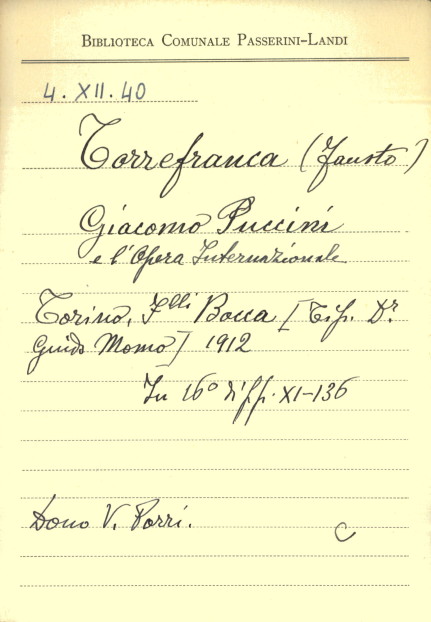 BIBLIOTECA COMUNALE PASSERINI-LANDI
4. XII. 40
Torrefranca (Fausto)
Giacomo Puccini
e l'Opera Internazionale
Torino, F.lli Bocca [Tip. Dr.
Guido Momo] 1912
In 16° di pp. XI-136
Dono V. Porri.
C